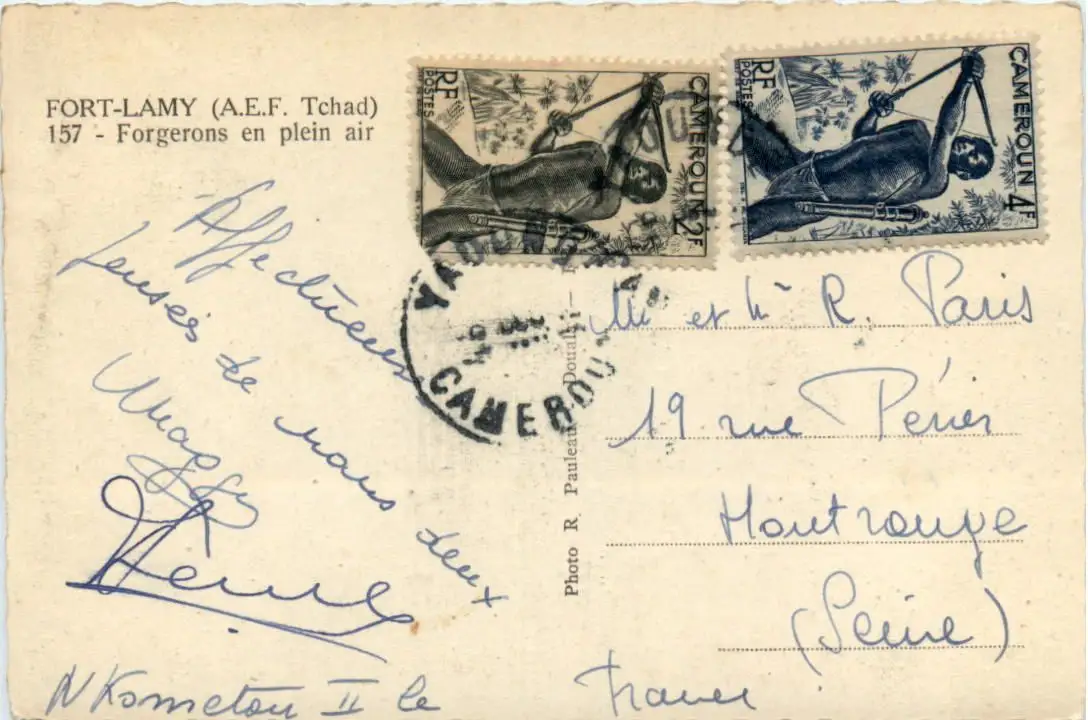 FORT-LAMY (A.E.F. Tchad)
157 - Forgerons en plein air
Affectueuses
pensées de nous deux
Maggy
N'Kometou II le
Photo R Pauleau Douala
RF
POSTES
CAMEROUN 2F
RF
POSTES
CAMEROUN 4F
CAMEROUN
Mr et Me R. Paris
19 rue Périer
Montrouge
(Seine)
France